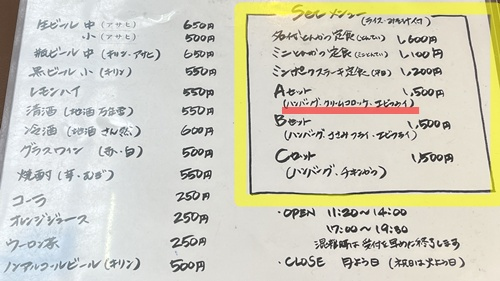 生ビール 中 (アサヒ) 650円
小 (アサヒ) 500円
瓶ビール 中 (キリン、アサヒ) 650円
黒ビール 小 (キリン) 550円
レモンハイ 550円
清酒 550円
冷酒 600円
グラスワイン (赤・白) 500円
焼酎 (芋・むぎ) 550円
コーラ 250円
オレンジジュース 250円
ウーロン茶 250円
ノンアルコールビール (キリン) 500円
Set メニュー
(ライス・みそ汁付)
名代とんかつ定食 1,600円
ミニとんかつ定食 1,100円
ミンチポークステーキ定食 1,200円
Aセット 1,500円
(ハンバーグ、クリームコロッケ、エビフライ)
Bセット 1,500円
(ハンバーグ、ささみフライ・エビフライ)
Cセット 1,500円
(ハンバーグ、チキンカツ)
・OPEN 11:20~14:00
17:00~19:30
混雑時は受付を早めに終了します
・CLOSE 月よう日 (祝日は火よう日)